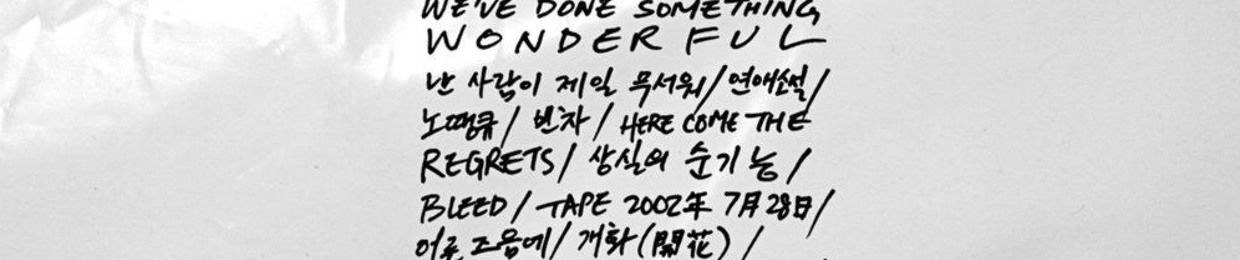 WE'VE DONE SOMETHING
WONDERFUL
난 사람이 제일 무서워/연애소설/
노땡큐/ 빈차/ HERE COME THE
REGRETS/ 상실의 순기능/
BLEED/ TAPE 2002年 7月 28日/
어른 즈음에/ 개화(開花)/